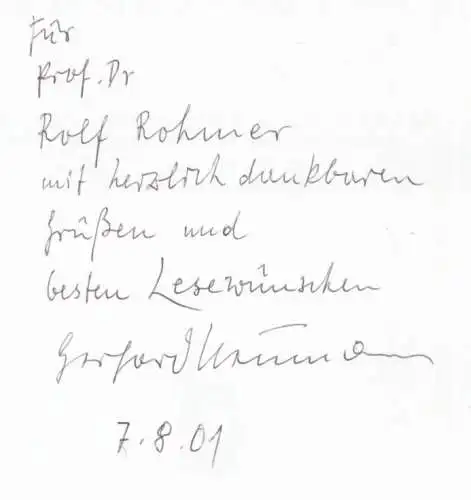 Für
Prof. Dr
Rolf Rohmer
mit herzlich dankbaren
Grüßen und
besten Lesewünschen
Gerhard Neumann
7.8.01